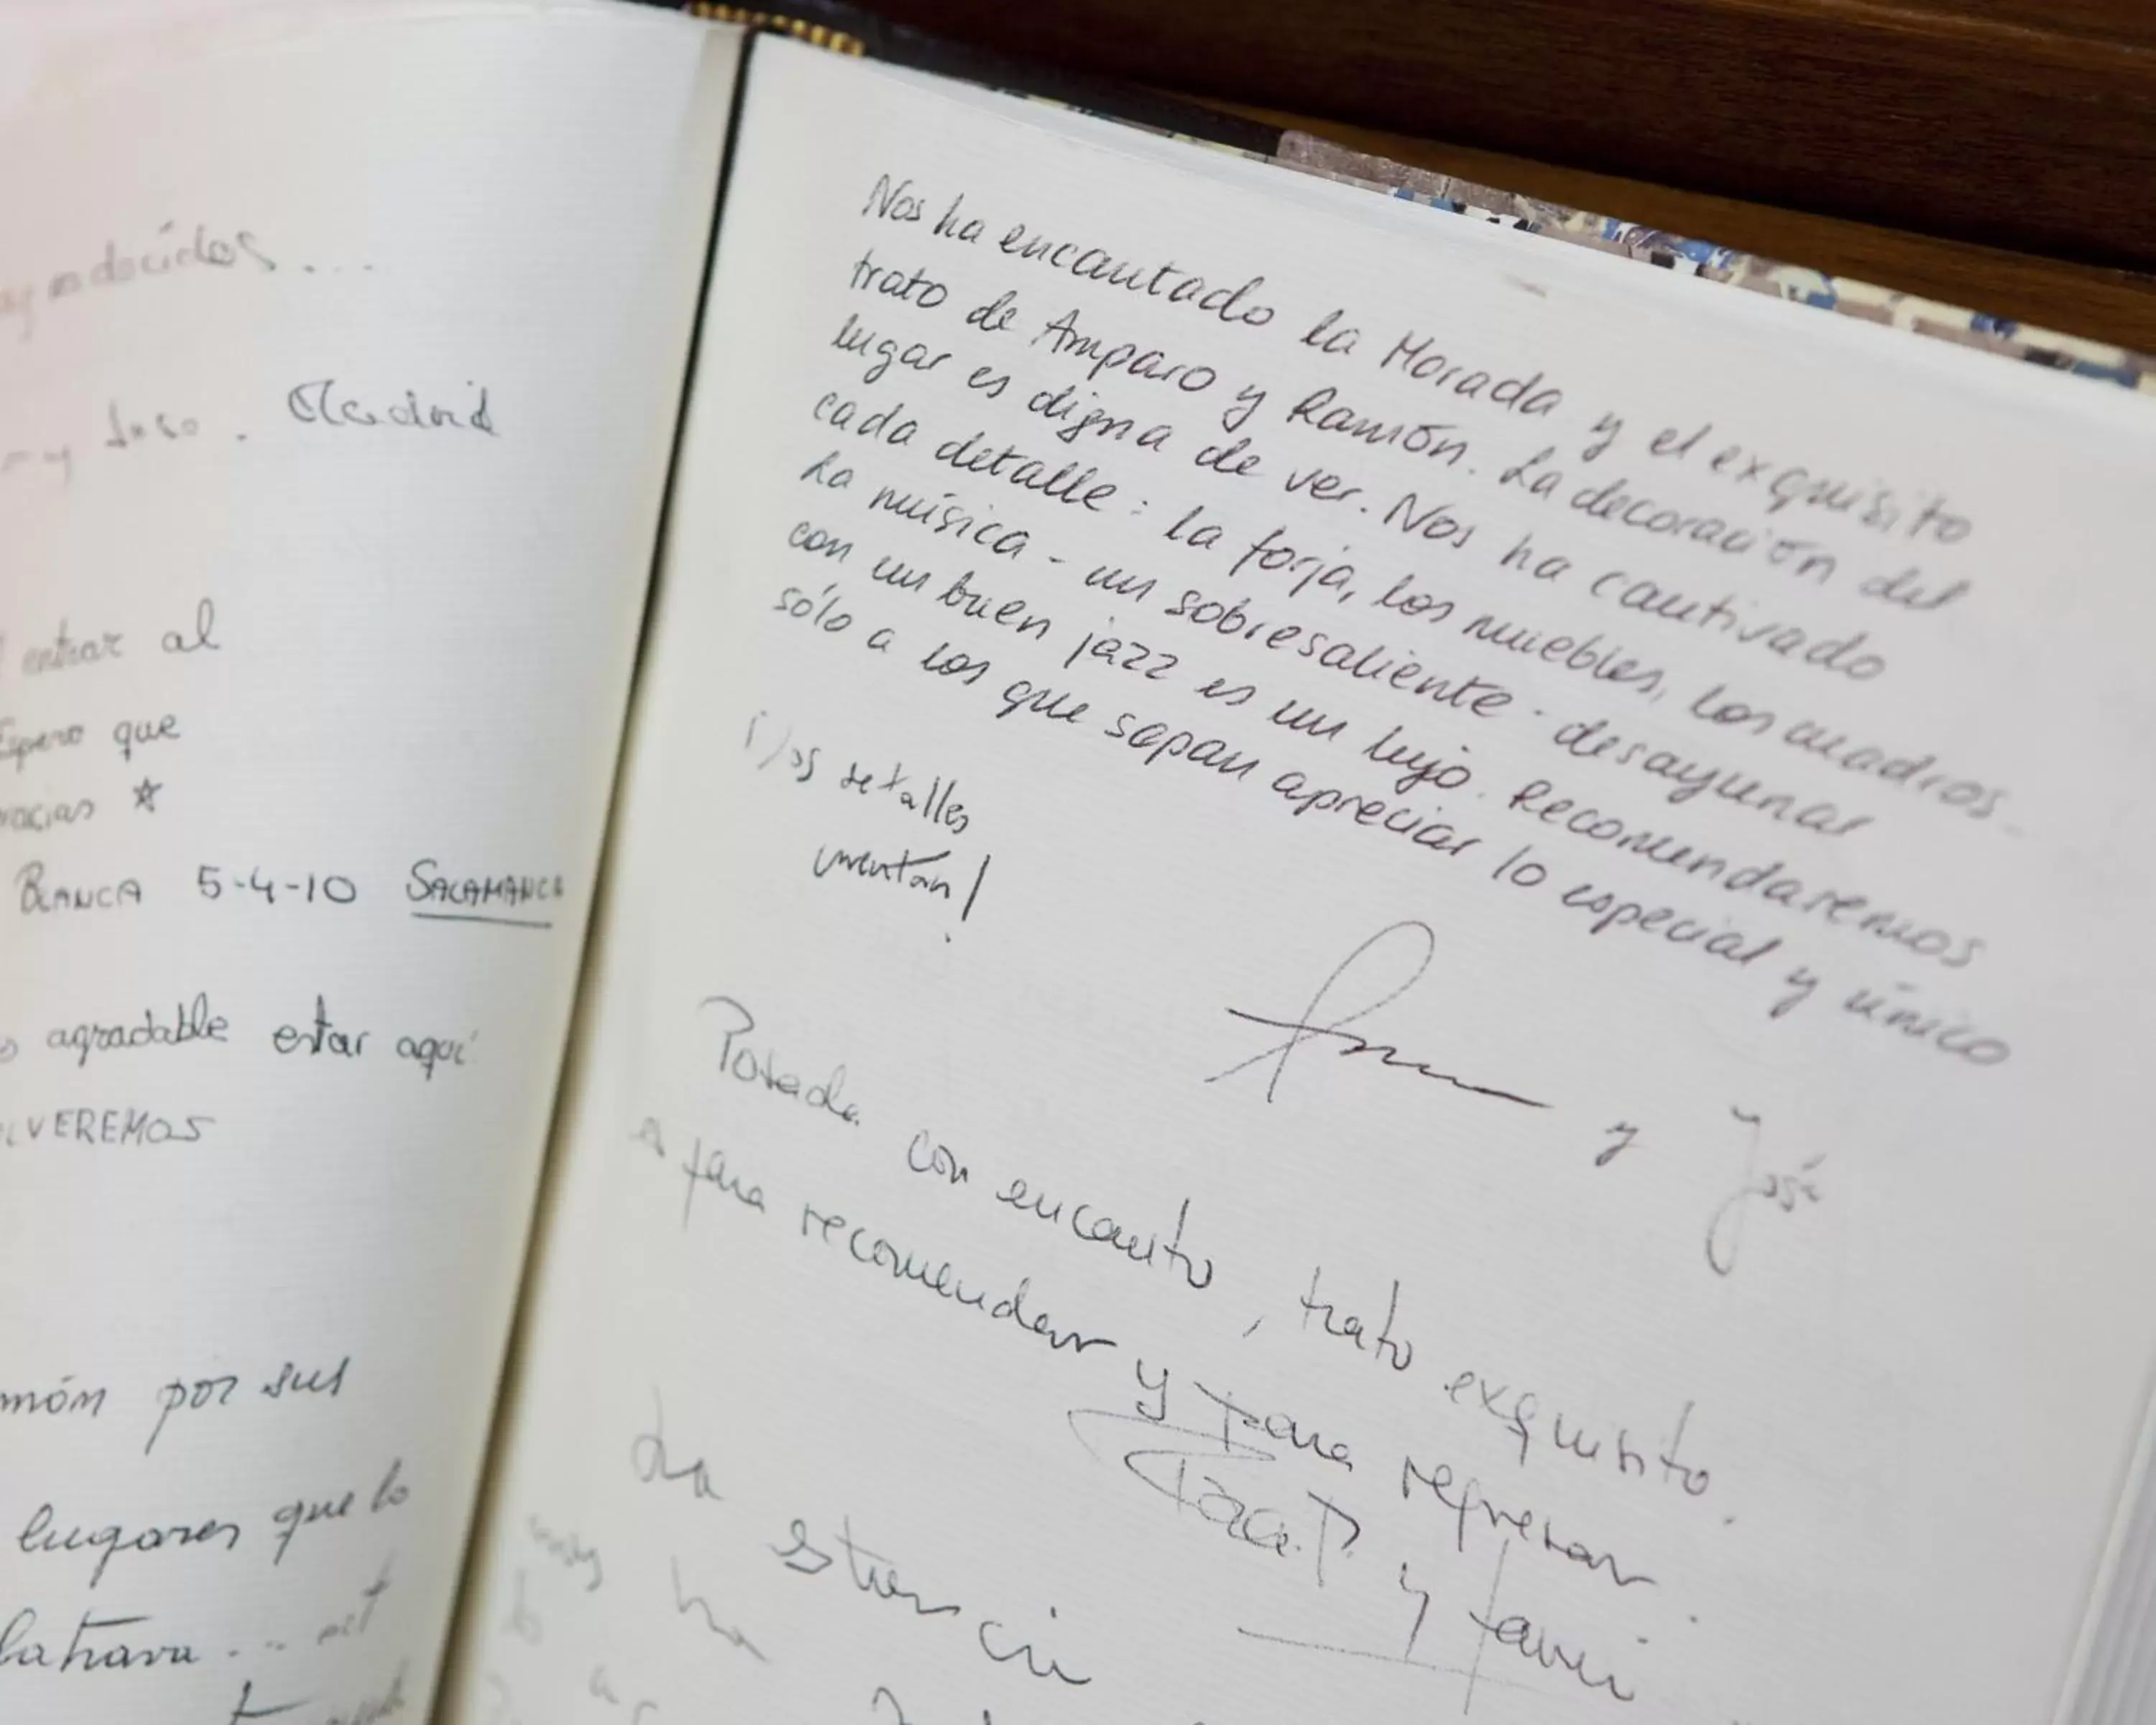 agradecidos...
Madrid
entrar al
Espero que
gracias ☆
BLANCA 5-4-10 SALAMANCA
agradable estar aquí
LVEREMOS
món por sus
lugares que lo
latrava...
Nos ha encantado la Morada y el exquisito
trato de Amparo y Ramón. La decoración del
lugar es digna de ver. Nos ha cautivado
cada detalle: la forja, los muebles, los cuadros...
La música - un sobresaliente - desayunar
con un buen jazz es un lujo. Recomendaremos
sólo a los que sepan apreciar lo especial y único
¡Los detalles
cuentan!
y José
Posada con encanto, trato exquisito.
es para recomendar y para regresar.
y Javi
La estancia